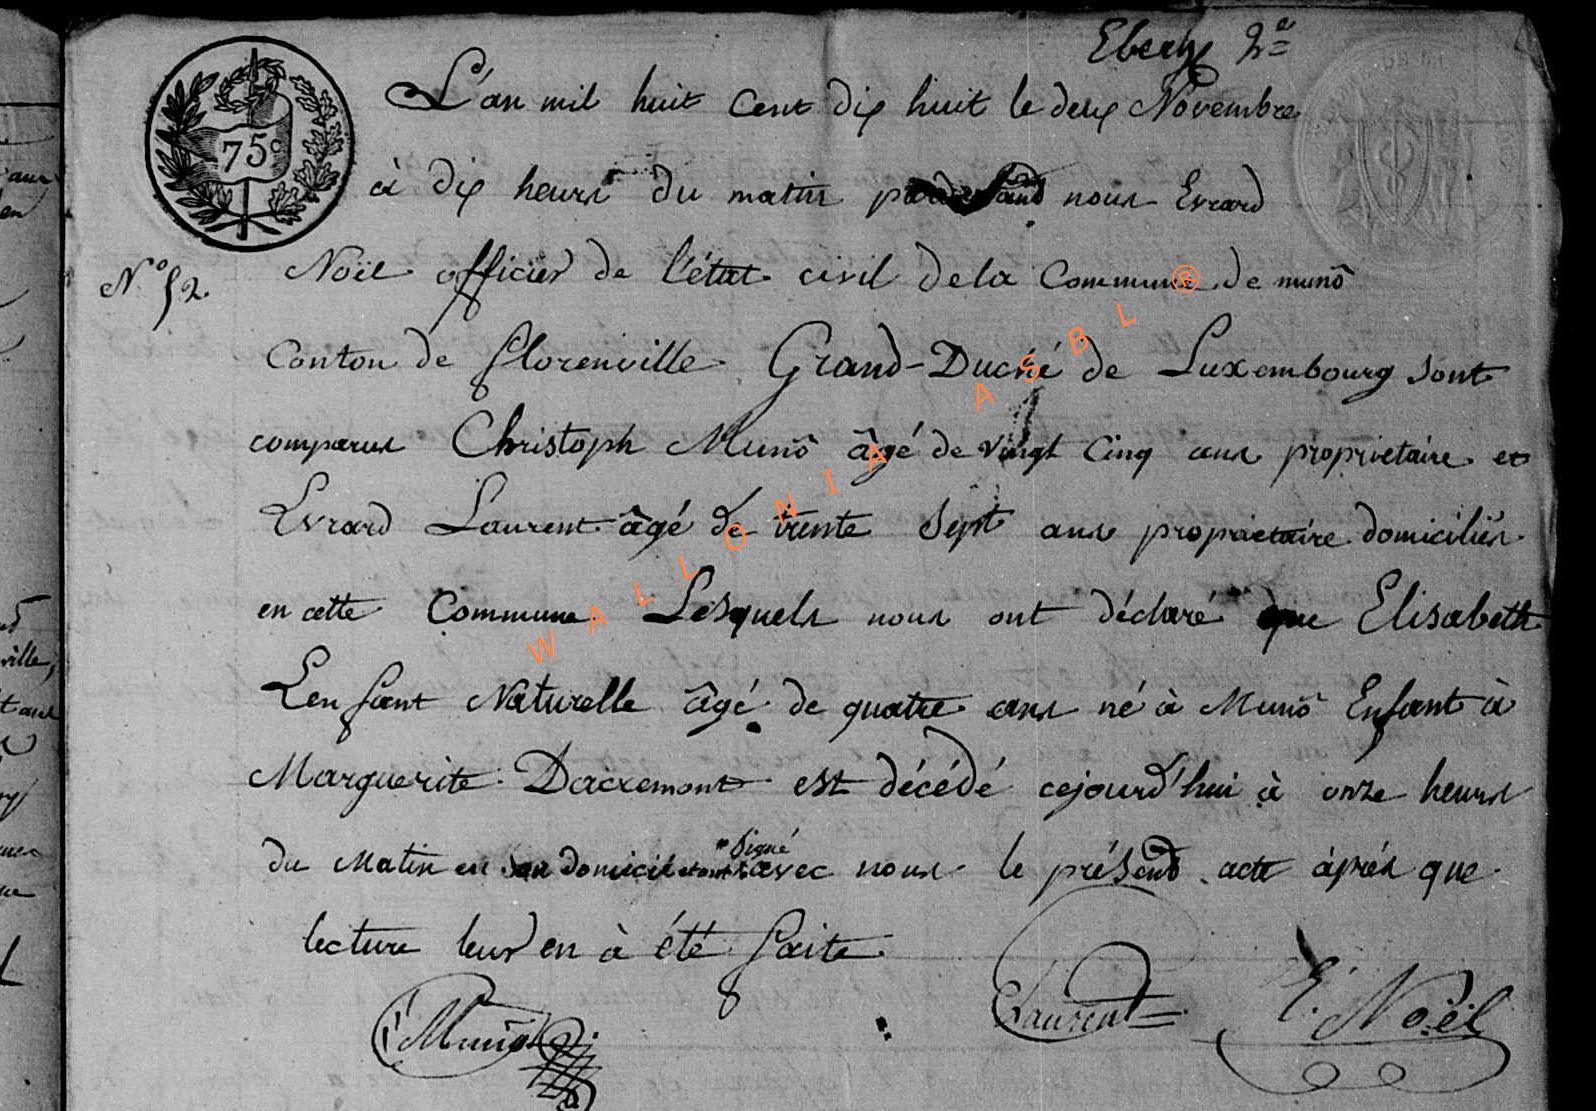 2e
L'an mil huit Cent dix huit le deux Novembre
75c
à dix heurs du matin pardevant nous Evrard
N° 52.
Noël officier de l'état civil de la Commune de munô
Canton de florenville Grand-Duché de Luxembourg sont
comparus Christoph Munô âgé de vingt Cinq ans proprietaire et
Evrard Laurent âgé de trente Sept ans propriaetaire domiciliés
en cette Commune Lesquels nous ont déclaré que Elisabeth
L'enfant Naturelle âgé de quatre ans né à Munô Enfant à
Marguerite Dacremont est décédé cejourd'hui à onze heurs
du Matin en son domicil et ont signé avec nous le présend acte après que
lecture leur en à été faite
C Munô
E Laurent
E. Noël
WALLONIA ASBL ®